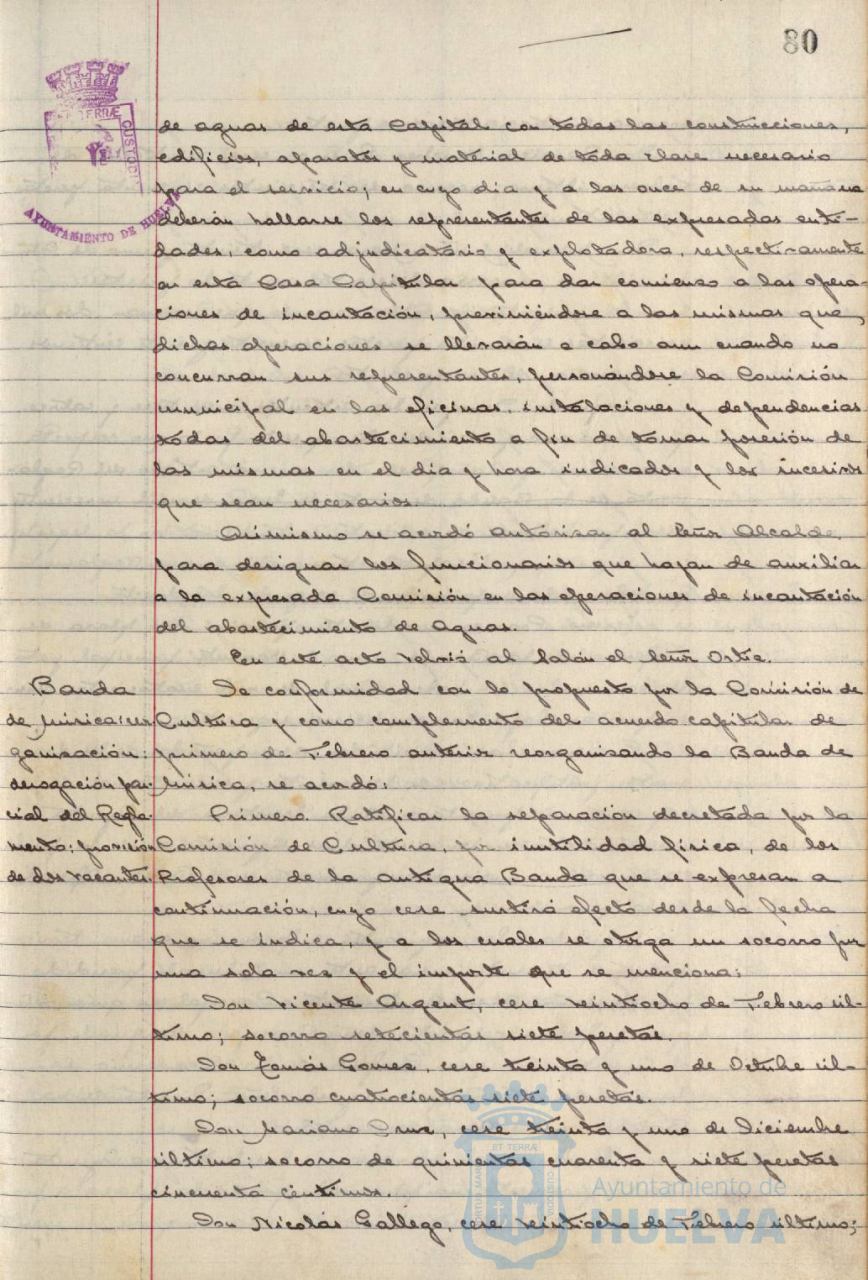 80
de aguas de esta Capital con todas las construcciones,
edificios, aparatos y material de toda clase necesario
para el servicio, en cuyo dia y a las once de su mañana
deberán hallarse los representantes de las expresadas enti-
dades, como adjudicatario y explotadora, respectivamente
en esta Casa Capitular para dar comienzo a las opera-
ciones de incautación, previniéndose a las mismas que,
dichas operaciones se llevarán a cabo aun cuando no
concurran sus representantes, personándose la Comisión
municipal en las oficinas, instalaciones y dependencias
todas del abastecimiento a fin de tomar posesión de
las mismas en el dia y hora indicados y los sucesivos
que sean necesarios.
Asimismo se acordó autorizar al Señor Alcalde,
para designar los funcionarios que hayan de auxiliar
a la expresada Comisión en las operaciones de incautación
del abastecimiento de Aguas.
En este acto volvió al Salón el Señor Ortiz.
Banda
de música: reor
ganización:
derogación par-
cial del Regla-
mento: provisión
de dos vacantes.
De conformidad con lo propuesto por la Comisión de
Cultura y como complemento del acuerdo capitular de
primero de Febrero anterior reorganizando la Banda de
Música, se acordó:
Primero. Ratificar la separación decretada por la
Comisión de Cultura, por inutilidad física, de los
Profesores de la antigua Banda que se expresan a
continuación, cuyo cese surtirá efecto desde la fecha
que se indica, y a los cuales se otorga un socorro por
una sola vez y el importe que se menciona:
Don Vicente Argent, cese veintiocho de Febrero úl-
timo; socorro setecientas siete pesetas.
Don Tomás Gomez, cese treinta y uno de Octubre úl-
timo; socorro cuatrocientas siete pesetas.
Don Mariano Cruz, cese treinta y uno de Diciembre
último; socorro de quinientas cuarenta y siete pesetas
cincuenta céntimos.
Don Nicolás Gallego, cese veintiocho de Febrero último;
TERRÆ
CUSTODI
AYUNTAMIENTO DE HUELVA
ET TERRÆ
Ayuntamiento de
HUELVA